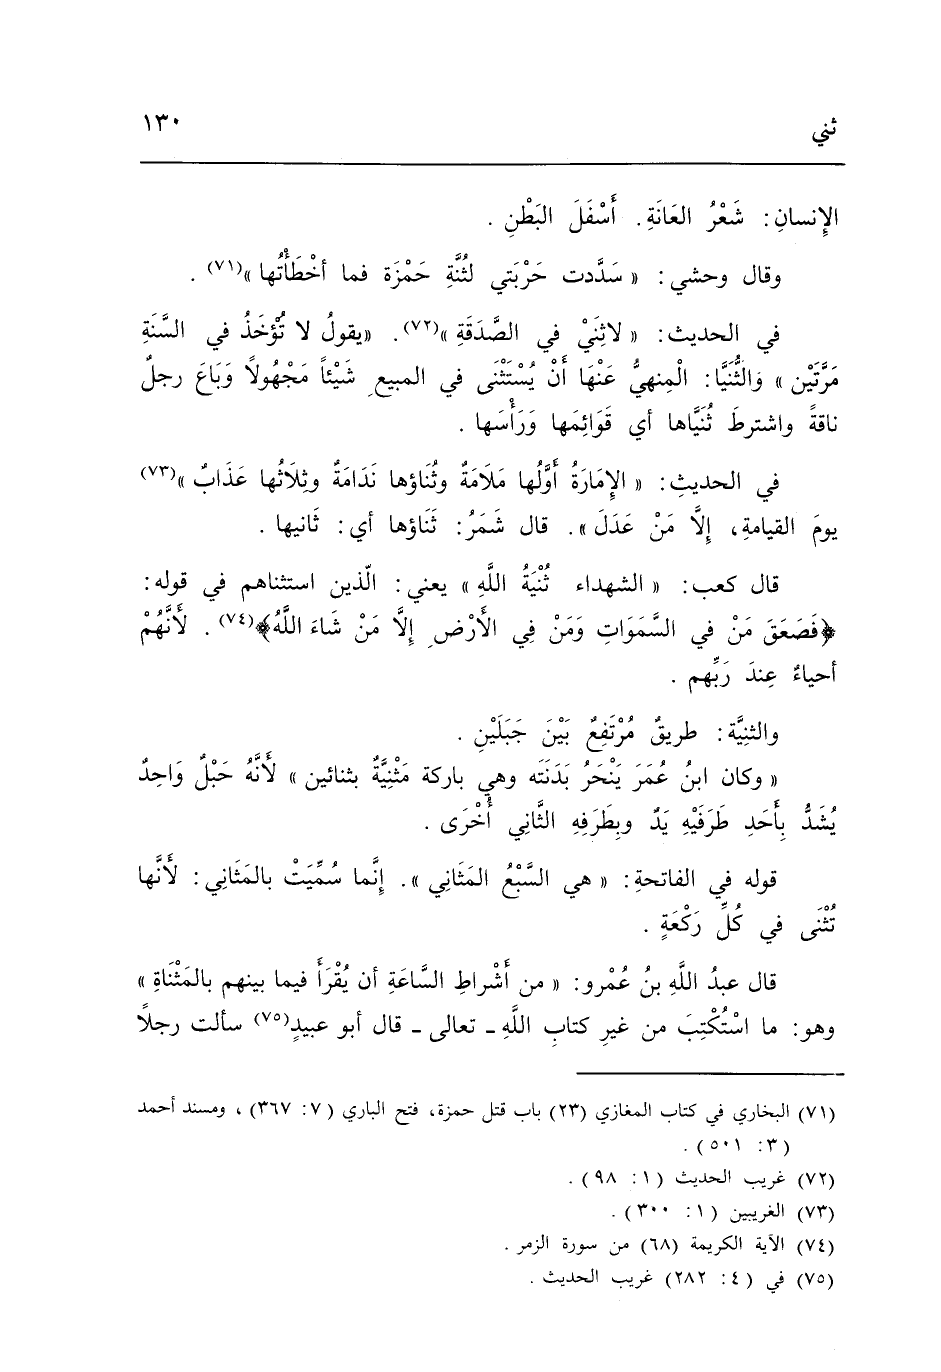 ثني ١٣٠
الإِنسانِ: شَعْرُ العَانَةِ. أَسْفَلَ البَطْنِ .
وقال وحشي: « سَدَّدت حَرْبَتي لثُنَّةِ حَمْزَة فما أخْطَأْتُها »(٧١) .
في الحديث: « لاثِنَيْ في الصَّدَقَةِ »(٧٢). «يقولُ لا تُؤْخَذُ في السَّنَةِ
مَرَّتَيْن » وَالثُّنَيَّا: الْمِنهيُّ عَنْهَا أَنْ يُسْتَثْنَى في المبيعِ شَيْئاً مَجْهُولاً وَبَاعَ رجلٌ
ناقةً واشترطَ ثُنَيَّاها أي قَوَائِمَها وَرَأْسَها .
في الحديثِ: « الإِمَارَةُ أَوَّلُها مَلَامَةٌ وثُنَاؤها نَدَامَةٌ وثِلَاثُها عَذَابٌ »(٧٣)
يومَ القيامةِ، إِلَّا مَنْ عَدَلَ ». قال شَمَرُ: ثَنَاؤها أي: ثَانيها .
قال كعب: « الشهداء ثُنْيَةُ اللَّهِ » يعني: الّذين استثناهم في قوله:
﴿فَصَعَقَ مَنْ في السَّمَوَاتِ وَمَنْ فِي الأَرْضِ إِلَّا مَنْ شَاءَ اللَّهُ﴾(٧٤) . لأَنَّهُمْ
أحياءٌ عِندَ رَبِّهم .
والثنِيَّة: طريقٌ مُرْتَفِعٌ بَيْنَ جَبَلَيْنِ .
« وكان ابنُ عُمَرَ يَنْحَرُ بَدَنَتَه وهي باركة مَثْنِيَّةٌ بثنائين » لأَنَّهُ حَبْلٌ وَاحِدٌ
يُشَدُّ بِأَحَدِ طَرَفَيْهِ يَدٌ وبِطَرفِهِ الثَّانِي أُخْرَى .
قوله في الفاتحةِ: « هي السَّبْعُ المَثَاني ». إِنَّما سُمِّيَتْ بالمَثَانِي: لأَنَّها
تُثْنَى في كُلِّ رَكْعَةٍ .
قال عبدُ اللَّهِ بنُ عُمْرو: « من أَشْراطِ السَّاعَةِ أن يُقْرَأَ فيما بينهم بالمَثْنَاةِ »
وهو: ما اسْتُكْتِبَ من غيرِ كتابِ اللَّهِ ـ تعالى ـ قال أبو عبيدٍ(٧٥) سألت رجلاً
(٧١) البخاري في كتاب المغازي (٢٣) باب قتل حمزة، فتح الباري (٧: ٣٦٧) ، ومسند أحمد
(٣: ٥٠١) .
(٧٢) غريب الحديث (١: ٩٨) .
(٧٣) الغريبين (١: ٣٠٠) .
(٧٤) الآية الكريمة (٦٨) من سورة الزمر .
(٧٥) في (٤: ٢٨٢) غريب الحديث .